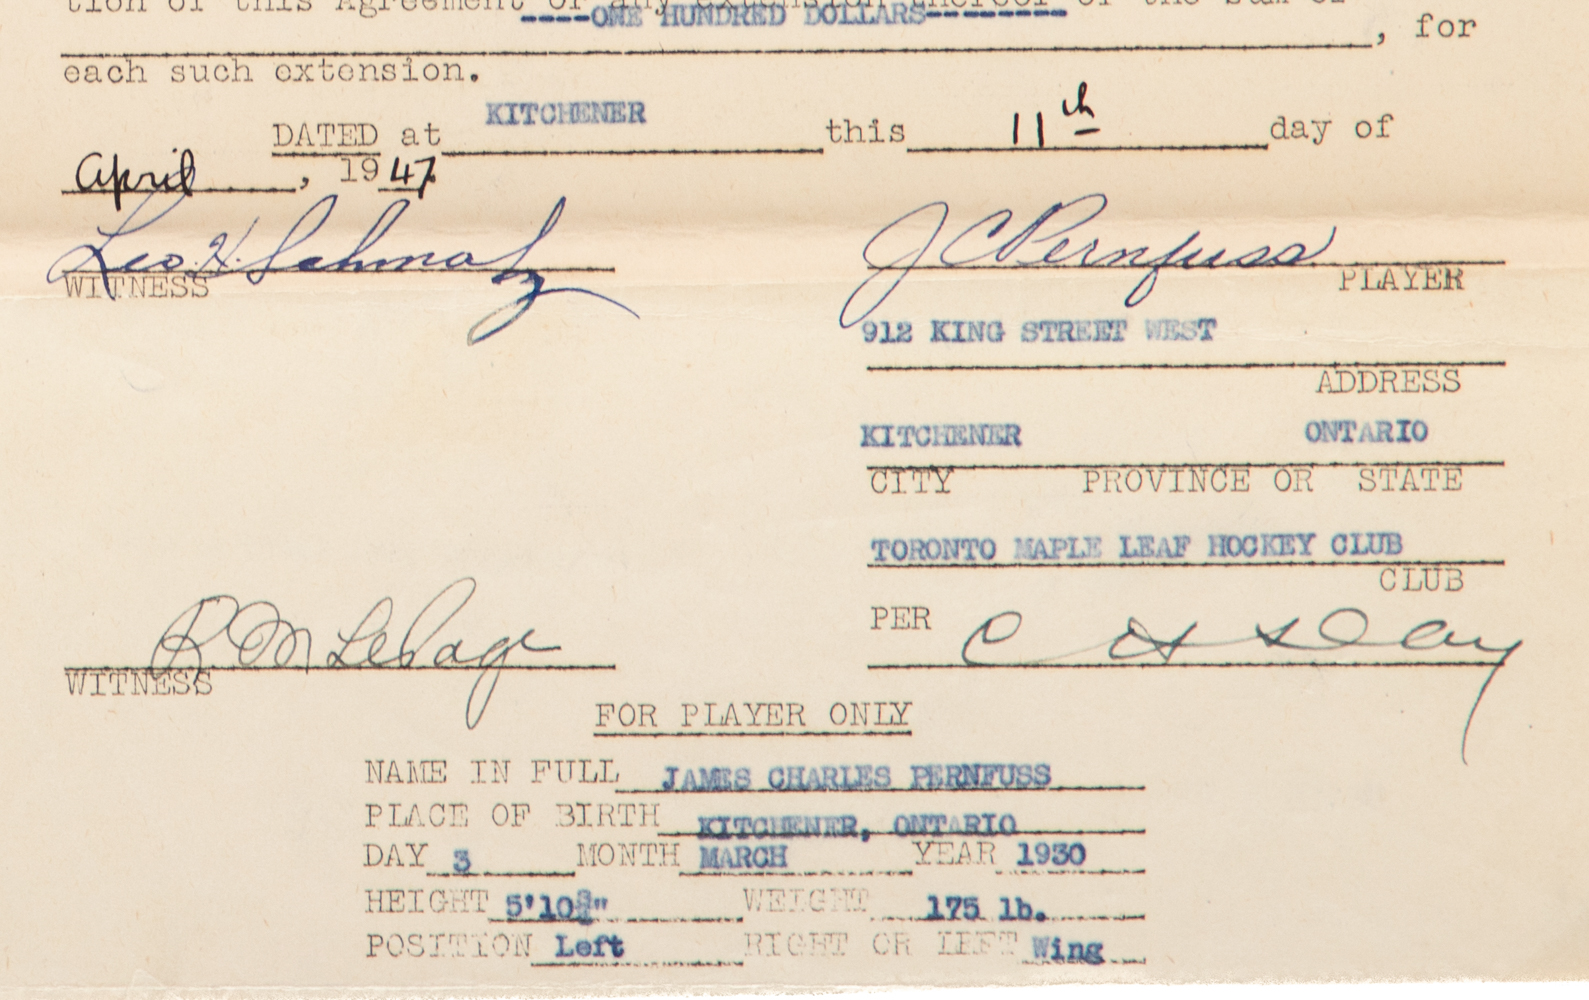 tion of this Agreement or any extension thereof of the sum of
----ONE HUNDRED DOLLARS---------, for
each such extension.
DATED at KITCHENER this 11th day of
April, 1947
Leo. H. Schmalz J C Pernfuss
WITNESS PLAYER
912 KING STREET WEST
ADDRESS
KITCHENER ONTARIO
CITY PROVINCE OR STATE
TORONTO MAPLE LEAF HOCKEY CLUB
CLUB
R M LePage PER C H S Day
WITNESS
FOR PLAYER ONLY
NAME IN FULL JAMES CHARLES PERNFUSS
PLACE OF BIRTH KITCHENER, ONTARIO
DAY 3 MONTH MARCH YEAR 1930
HEIGHT 5'10" WEIGHT 175 lb.
POSITION Left RIGHT OR LEFT Wing